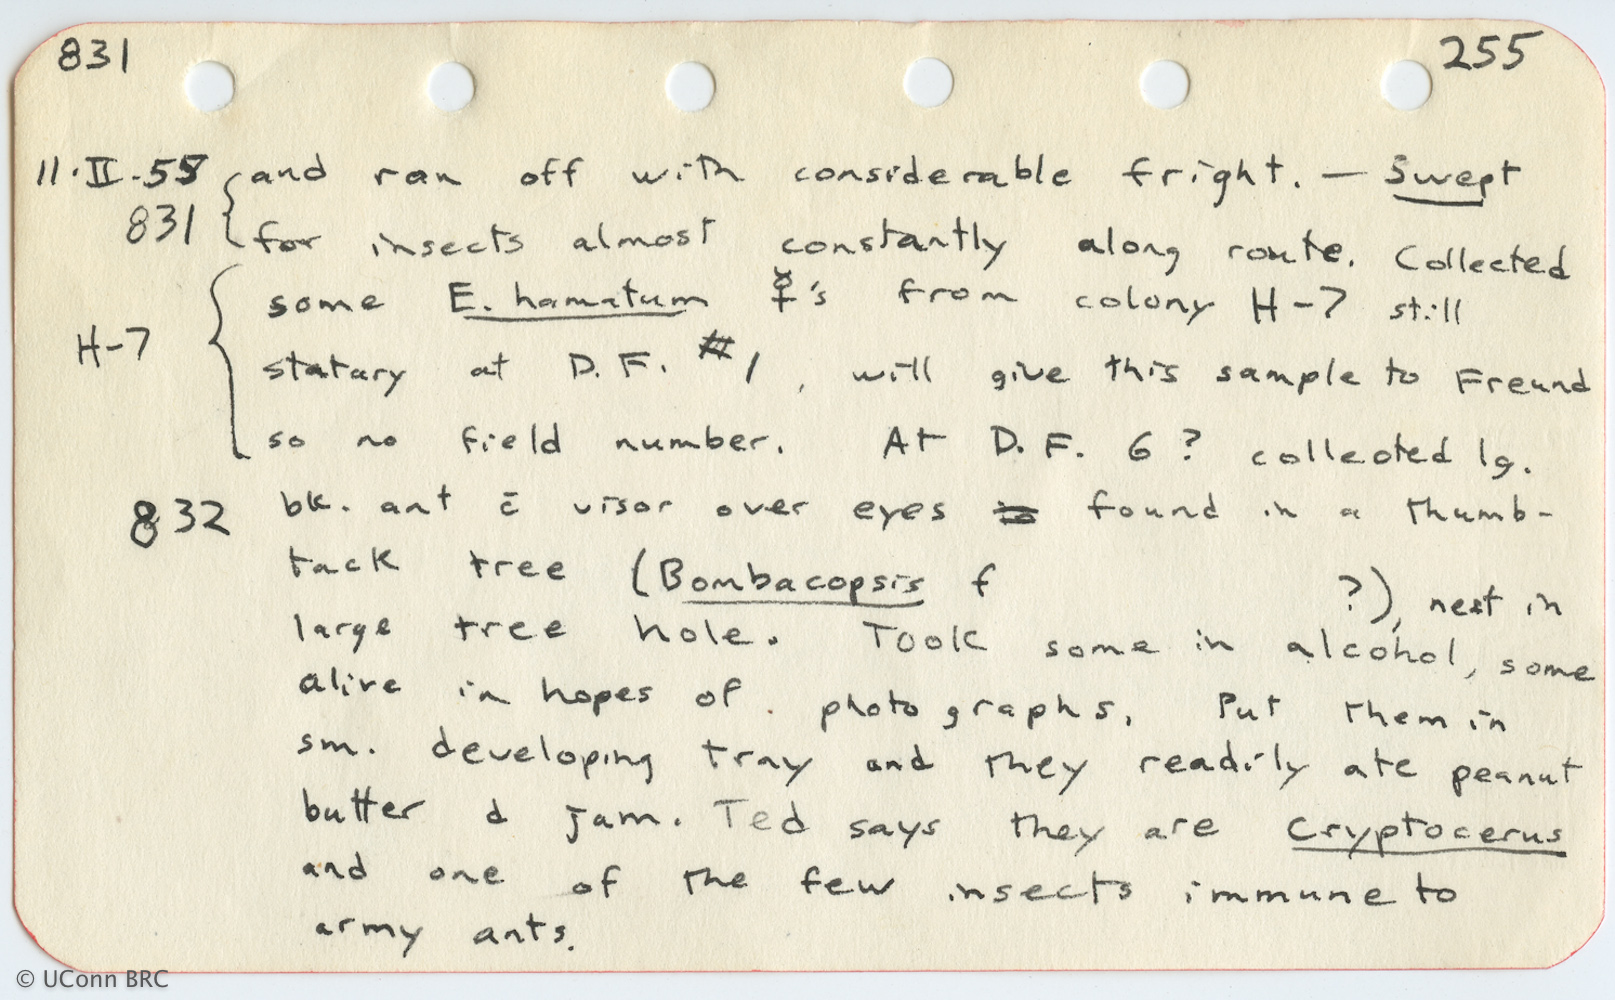 831 255
11.II.55 and ran off with considerable fright. — Swept
831 for insects almost constantly along route. Collected
some E. hamatum ☿'s from colony H-7 still
H-7 statary at D.F. #1, will give this sample to Freund
so no field number. At D.F. 6? collected lg.
832 bk. ant c̄ visor over eyes found in a thumb-
tack tree (Bombacopsis f ?), nest in
large tree hole. Took some in alcohol, some
alive in hopes of photographs. Put them in
sm. developing tray and they readily ate peanut
butter & jam. Ted says they are Cryptocerus
and one of the few insects immune to
army ants.
© UConn BRC